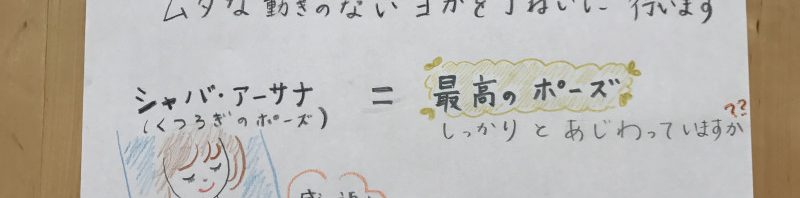 ムダな動きのないヨガを丁ねいに 行います
シャバ・アーサナ = 最高のポーズ
(くつろぎのポーズ)
しっかりとあじわっていますか??